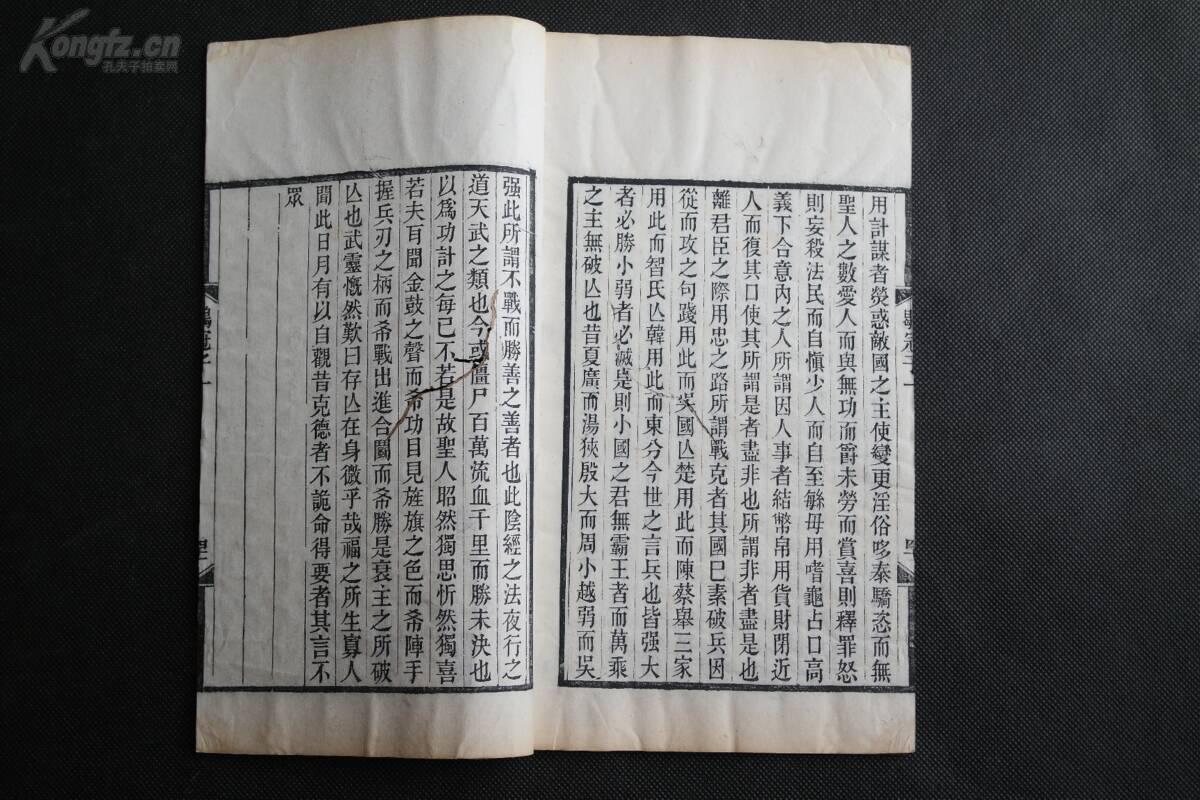 Kongfz.cn
孔夫子拍卖网
用計謀者熒惑敵國之主使變更淫俗哆泰驕恣而無
聖人之數愛人而與無功而爵未勞而賞喜則釋罪怒
則妄殺法民而自愼少人而自至繇毋用嗜龜占口高
義下合意內之人所謂因人事者結幣帛用貨財閉近
人而復其口使其所謂是者盡非也所謂非者盡是也
離君臣之際用忠之路所謂戰克者其國已素破兵因
從而攻之句踐用此而吳國亾楚用此而陳蔡舉三家
用此而智氏亾韓用此而東分今世之言兵也皆强大
者必勝小弱者必滅是則小國之君無霸王者而萬乘
之主無破亾也昔夏廣而湯狹殷大而周小越弱而吳
强此所謂不戰而勝善之善者也此陰經之法夜行之
道天武之類也今或僵尸百萬流血千里而勝未決也
以爲功計之每已不若是故聖人昭然獨思忻然獨喜
若夫耳聞金鼓之聲而希功目見旌旗之色而希陣手
握兵刃之柄而希戰出進合鬭而希勝是衰王之所破
亾也武靈慨然歎曰存亾在身微乎哉福之所生寡人
聞此日月有以自觀昔克德者不詭命得要者其言不
眾